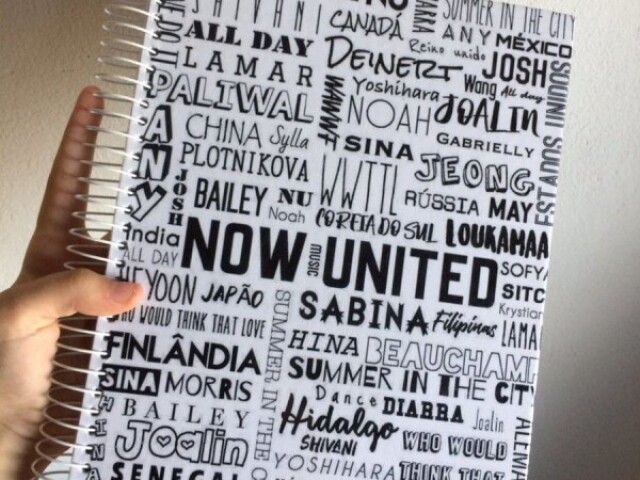 SHIVANI
CANADÁ
SUMMER IN THE CITY
ANY MÉXICO
ALL DAY
DEINERT
Reino unido
JOSH
LAMAR
Yoshihara
Wang
All day
PALIWAL
WWWF
NOAH
JOALIN
SOUNI
CHINA
Sylla
SINA
GABRIELLY
ANY
PLOTNIKOVA
WWTTL
JEONG
JOSH
BAILEY
NU
Noah
COREIA DO SUL
RÚSSIA
MAY
LOUKAMAA
India
ALL DAY
NOW
MUSIC
UNITED
SOFYA
HEYOON
JAPÃO
SUMMER IN THE C
SABINA
Filipinas
SITC
Krystian
LAMA
WHO WOULD THINK THAT LOVE
HINA
BEAUCHAMP
FINLÂNDIA
SUMMER IN THE CITY
SINA
MORRIS
Dance
DIARRA
Joalin
HINA
BAILEY
Hidalgo
WHO WOULD
ALEMA
Joalin
SHIVANI
SENEGAL
YOSHIHARA
THINK THAT